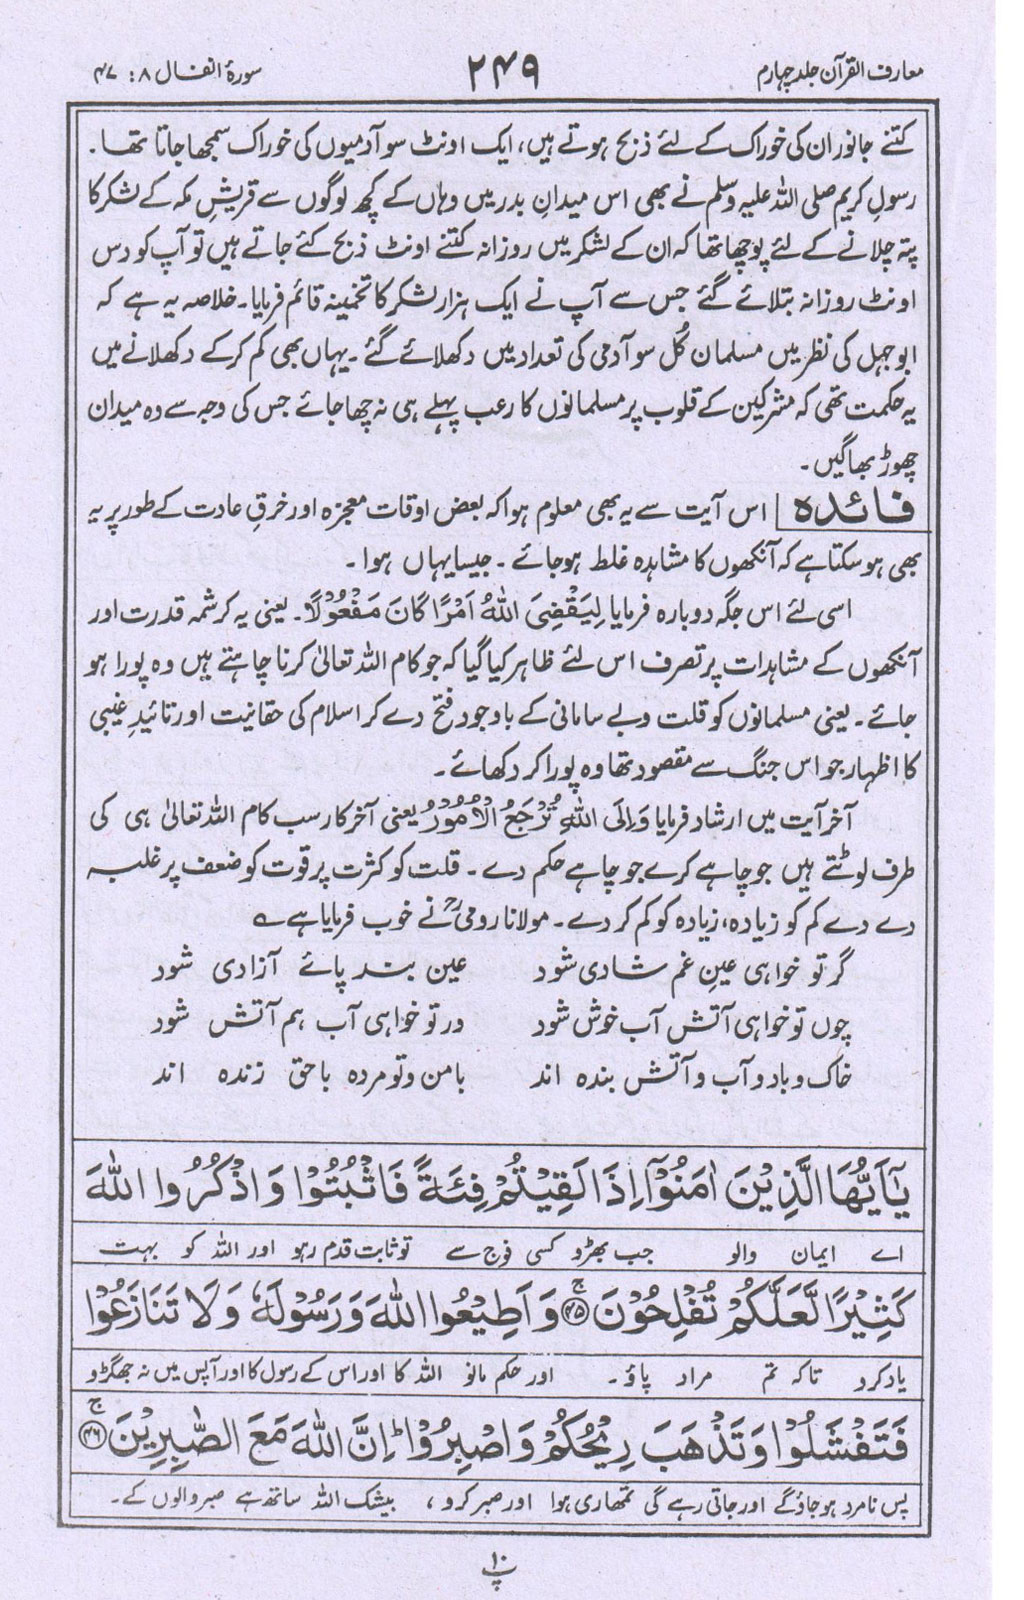 معارف القرآن جلد چہارم
۲۴۹
سورۂ انفال ۸: ۴۷
کتنے جانور ان کی خوراک کے لئے ذبح ہوتے ہیں، ایک اونٹ سو آدمیوں کی خوراک سمجھا جاتا تھا۔
رسولِ کریم صلی اللہ علیہ وسلم نے بھی اس میدانِ بدر میں وہاں کے کچھ لوگوں سے قریشِ مکہ کے لشکر کا
پتہ چلانے کے لئے پوچھا تھا کہ ان کے لشکر میں روزانہ کتنے اونٹ ذبح کئے جاتے ہیں تو آپ کو دس
اونٹ روزانہ بتلائے گئے جس سے آپ نے ایک ہزار لشکر کا تخمینہ قائم فرمایا۔ خلاصہ یہ ہے کہ
ابوجہل کی نظر میں مسلمان کُل سو آدمی کی تعداد میں دکھلائے گئے۔ یہاں بھی کم کرکے دکھلانے میں
یہ حکمت تھی کہ مشرکین کے قلوب پر مسلمانوں کا رعب پہلے ہی نہ چھا جائے جس کی وجہ سے وہ میدان
چھوڑ بھاگیں۔
فائدہ | اس آیت سے یہ بھی معلوم ہوا کہ بعض اوقات معجزہ اور خرقِ عادت کے طور پر یہ
بھی ہوسکتا ہے کہ آنکھوں کا مشاہدہ غلط ہوجائے۔ جیسا یہاں ہوا۔
اسی لئے اس جگہ دوبارہ فرمایا لِيَقْضِيَ اللهُ اَمْرًا كَانَ مَفْعُوْلًا۔ یعنی یہ کرشمہ قدرت اور
آنکھوں کے مشاہدات پر تصرف اس لئے ظاہر کیا گیا کہ جو کام اللہ تعالیٰ کرنا چاہتے ہیں وہ پورا ہو
جائے۔ یعنی مسلمانوں کو قلت و بے سامانی کے باوجود فتح دے کر اسلام کی حقانیت اور تائیدِ غیبی
کا اظہار جو اس جنگ سے مقصود تھا وہ پورا کر دکھائے۔
آخر آیت میں ارشاد فرمایا وَاِلَى اللهِ تُرْجَعُ الْاُمُوْرُ یعنی آخرکار سب کام اللہ تعالیٰ ہی کی
طرف لوٹتے ہیں جو چاہے کرے جو چاہے حکم دے۔ قلت کو کثرت پر قوت کو ضعف پر غلبہ
دے دے کم کو زیادہ، زیادہ کو کم کر دے۔ مولانا رومیؒ نے خوب فرمایا ہے ؎
گر تو خواہی عینِ غم شادی شود عین بند پائے آزادی شود
چوں تو خواہی آتش آب خوش شود ور تو خواہی آب ہم آتش شود
خاک و باد و آب و آتش بندہ اند با من و تو مردہ با حق زندہ اند
يٰٓاَيُّهَا الَّذِيْنَ اٰمَنُوْٓا اِذَا لَقِيْتُمْ فِئَةً فَاثْبُتُوْا وَاذْكُرُوا اللهَ
اے ایمان والو جب بھڑو کسی فوج سے تو ثابت قدم رہو اور اللہ کو بہت
كَثِيْرًا لَّعَلَّكُمْ تُفْلِحُوْنَ ۚ﴿۴۵﴾ وَاَطِيْعُوا اللهَ وَرَسُوْلَهٗ وَلَا تَنَازَعُوْا
یاد کرو تاکہ تم مراد پاؤ۔ اور حکم مانو اللہ کا اور اس کے رسول کا اور آپس میں نہ جھگڑو
فَتَفْشَلُوْا وَتَذْهَبَ رِيْحُكُمْ وَاصْبِرُوْا ؕ اِنَّ اللهَ مَعَ الصّٰبِرِيْنَ ۚ﴿۴۶﴾
پس نامرد ہوجاؤ گے اور جاتی رہے گی تمھاری ہوا اور صبر کرو، بیشک اللہ ساتھ ہے صبر والوں کے۔
پ ۱۰